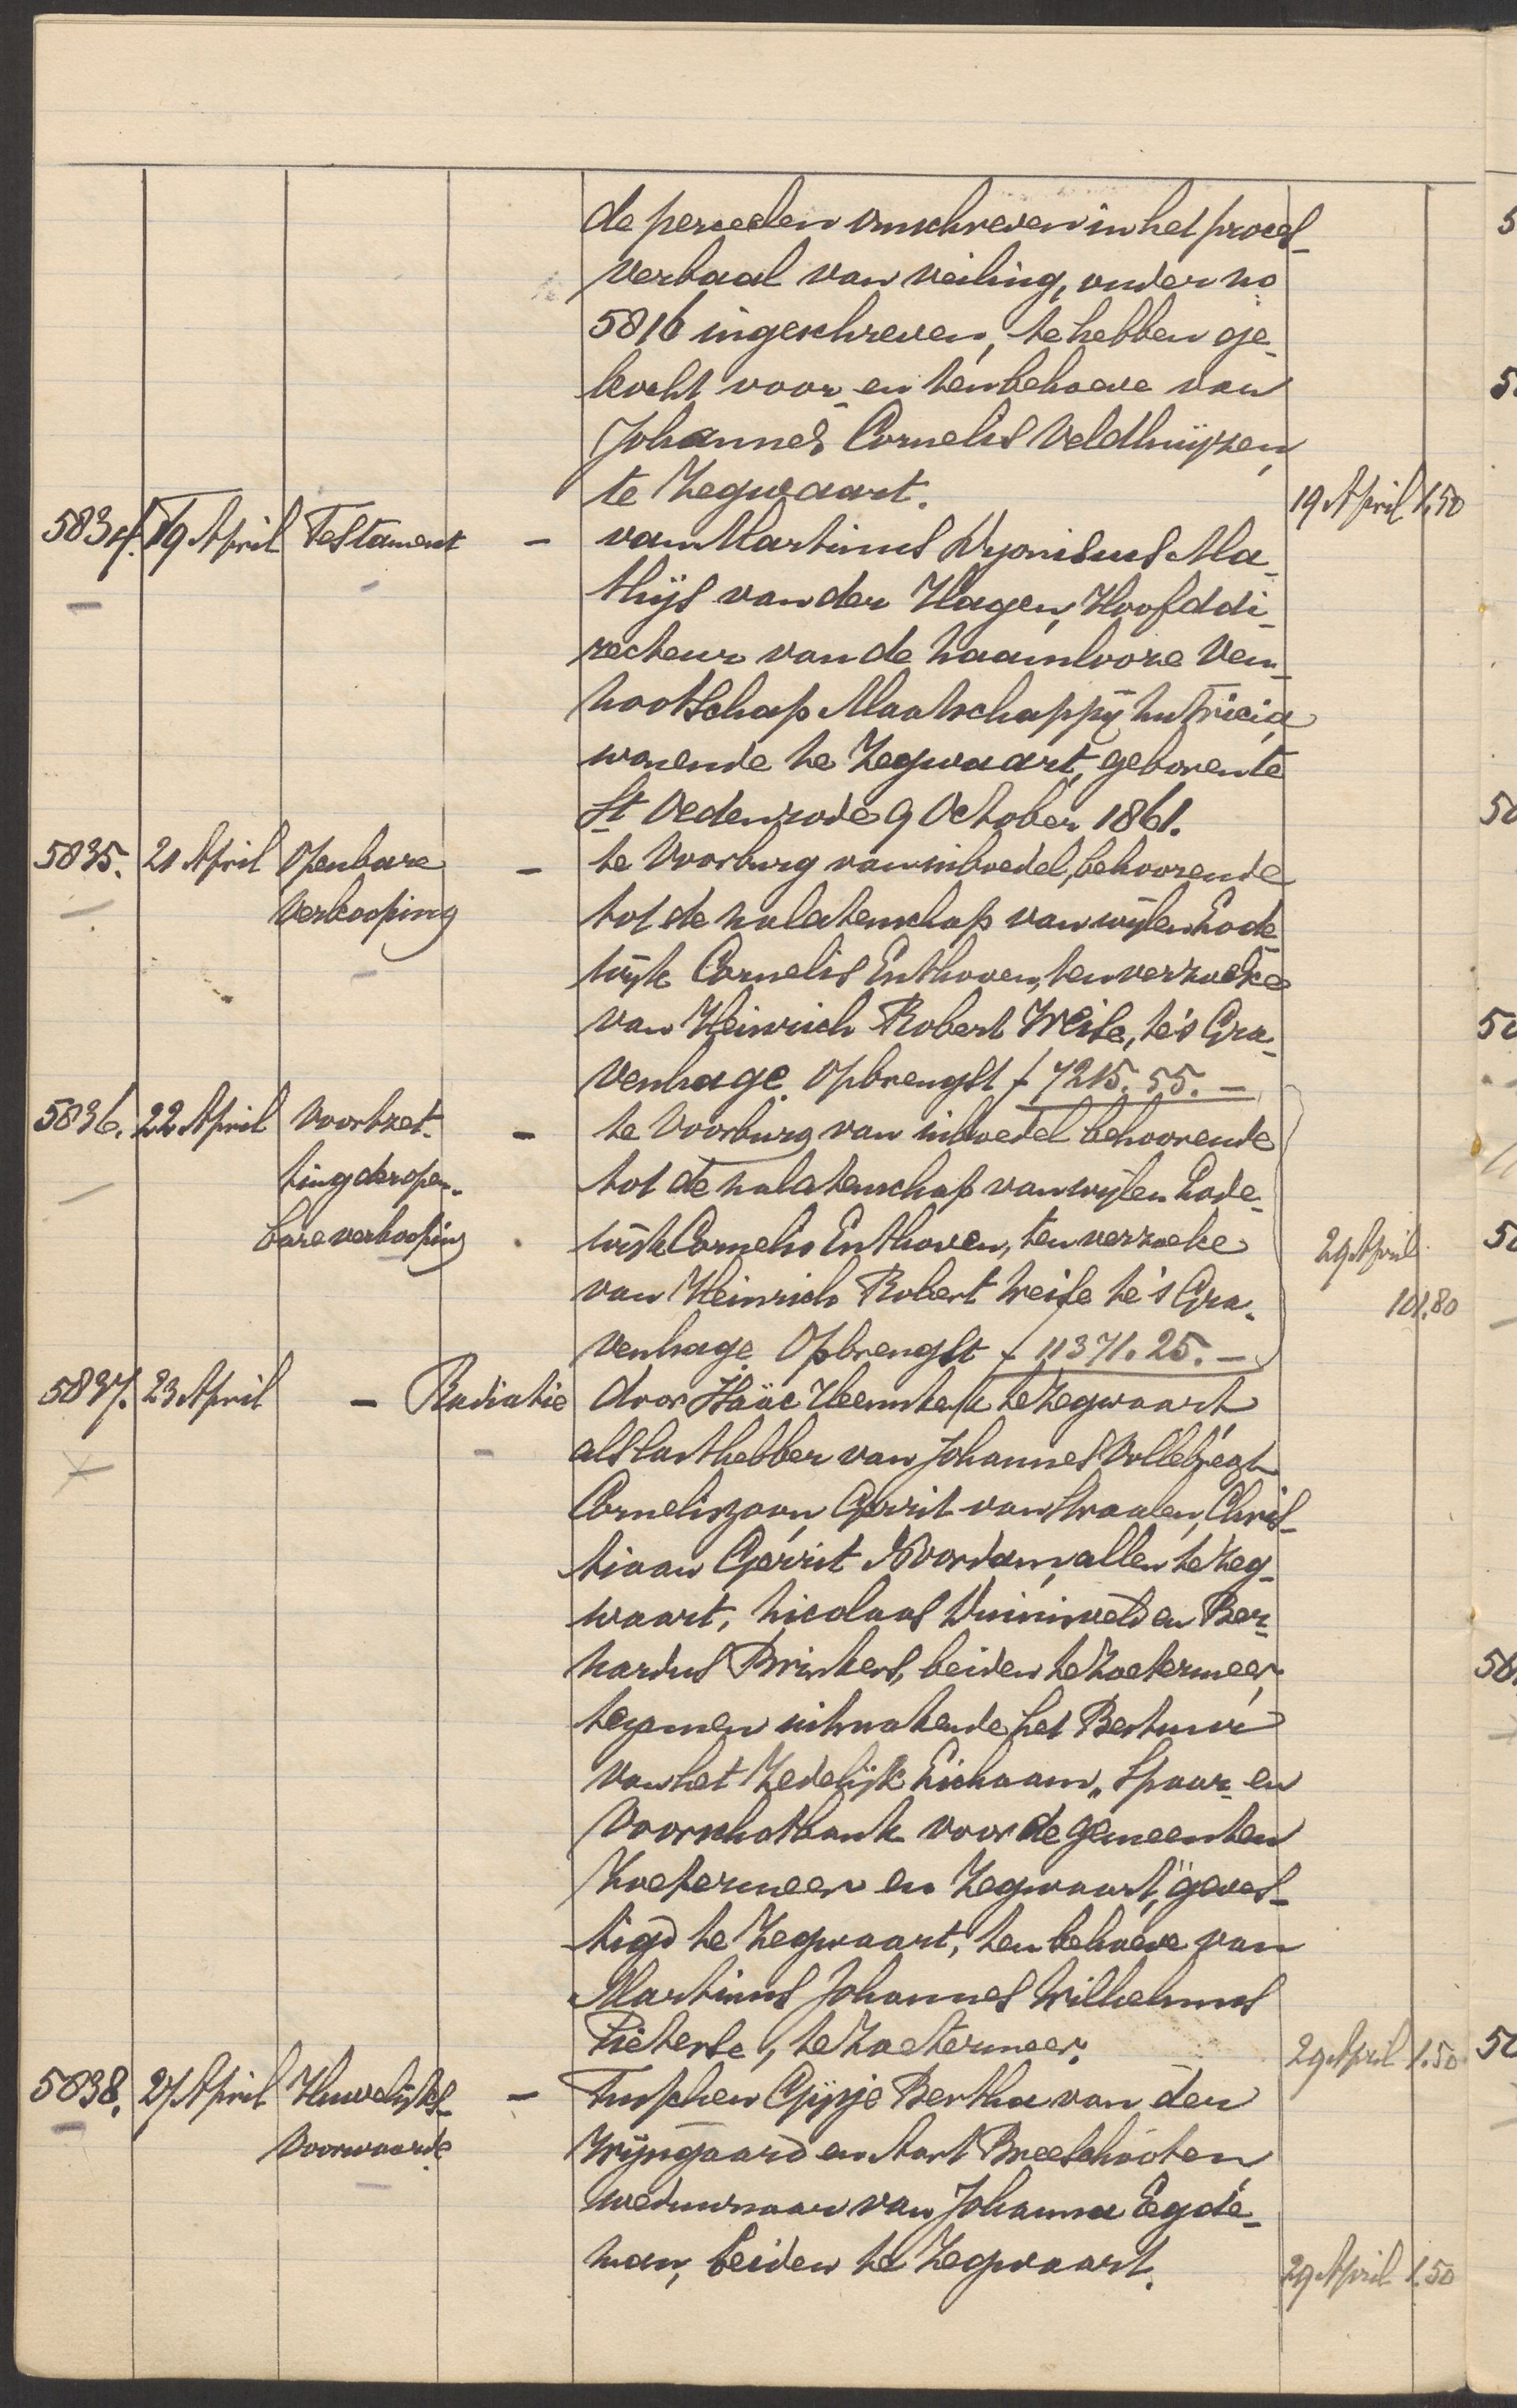 de perceelen omschreven in het proces-
verbaal van veiling, onder no
5816 ingeschreven, te hebben ge-
kocht voor en ten behoeve van
Johannes Cornelis Veldhuijzen,
te Zegwaart. 19 April 1,50
5834. 19 April Testament – van Martinus Dyonisius Ma-
thijs van der Hagen, Hoofddi-
recteur van de naamlooze Ven-
nootschap Maatschappij Nutricia,
wonende te Zegwaart, geboren te
St Oedenrode 9 October 1861.
5835. 21 April Openbare – te Voorburg van inboedel, behoorende
Verkooping tot de nalatenschap van wijlen Lode-
wijk Cornelis Enthoven, ten verzoeke
van Heinrich Robert Weise, te 's Gra-
venhage. Opbrengst f 7215.55.–
5836. 22 April Voortzet- – te Voorburg van inboedel behoorende
ting der open- tot de nalatenschap van wijlen Lode-
bare verkooping wijk Cornelis Enthoven, ten verzoeke 29 April
van Heinrich Robert Weise te 's Gra- 101.80
venhage. Opbrengst f 11371.25.–
5837. 23 April – Radiatie door Isäac Heemskerk te Zegwaart
als lasthebber van Johannes Vollebregt
Corneliszoon, Gerrit van Straalen, Chris-
tiaan Gerrit Noordam, allen te Zeg-
waart, Nicolaas Duinisveld en Ber-
nardus Brinkers, beiden te Zoetermeer,
tezamen uitmakende het Bestuur
van het Zedelijk Lichaam „Spaar- en
Voorschotbank voor de gemeenten
Zoetermeer en Zegwaart," geves-
tigd te Zegwaart, ten behoeve van
Martinus Johannes Wilhelmus
Pieterse, te Zoetermeer. 29 April 1.50
5838. 27 April Huwelijks- – Tusschen Gijpje Bertha van den
Voorwaarde Wijngaard en Aart Breeschooten,
weduwnaar van Johanna Eegde-
man, beiden te Zegwaart. 29 April 1.50